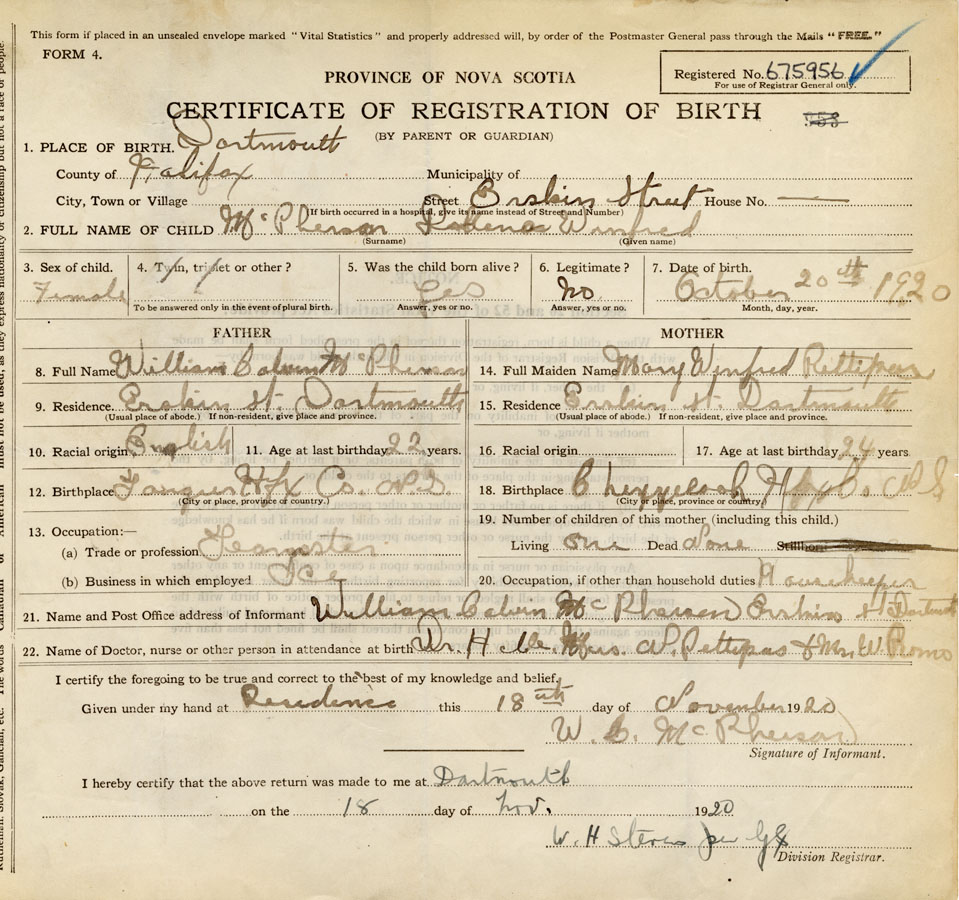 This form if placed in an unsealed envelope marked "Vital Statistics" and properly addressed will, by order of the Postmaster General pass through the Mails "FREE."
FORM 4.
Registered No. 675956
For use of Registrar General only.
PROVINCE OF NOVA SCOTIA
CERTIFICATE OF REGISTRATION OF BIRTH
(BY PARENT OR GUARDIAN)
1. PLACE OF BIRTH. Dartmouth
County of Halifax Municipality of
City, Town or Village Street Erskin Street House No.
(If birth occurred in a hospital, give its name instead of Street and Number)
2. FULL NAME OF CHILD McPherson Winfred
(Surname) (Given name)
3. Sex of child. 4. Twin, triplet or other? 5. Was the child born alive? 6. Legitimate? 7. Date of birth.
Female Yes no October 20th 1920
To be answered only in the event of plural birth. Answer, yes or no. Answer, yes or no. Month, day, year.
FATHER MOTHER
8. Full Name William Calvin McPherson 14. Full Maiden Name Mary Winfred Pettipas
9. Residence. Erskin St. Dartmouth 15. Residence Erskin St. Dartmouth
(Usual place of abode.) If non-resident, give place and province. (Usual place of abode.) If non-resident, give place and province.
10. Racial origin English 11. Age at last birthday 22 years. 16. Racial origin 17. Age at last birthday 24 years
12. Birthplace Hfx Co. N.S. 18. Birthplace Chezzetcook Hfx Co N S
(City or place, province or country.) (City or place, province or country.)
19. Number of children of this mother (including this child.)
13. Occupation:—
Living one Dead None Stillborn
(a) Trade or profession Teamster
(b) Business in which employed Ice 20. Occupation, if other than household duties Housekeeper
21. Name and Post Office address of Informant William Calvin McPherson Erskin St Dartmouth
22. Name of Doctor, nurse or other person in attendance at birth Dr. H Mrs. W. Pettipas & Mrs. W
I certify the foregoing to be true and correct to the best of my knowledge and belief.
Given under my hand at Residence this 18th day of November 1920
W. C. McPherson
Signature of Informant.
I hereby certify that the above return was made to me at Dartmouth
on the 18 day of Nov. 1920
W. H Stevens per
Division Registrar.